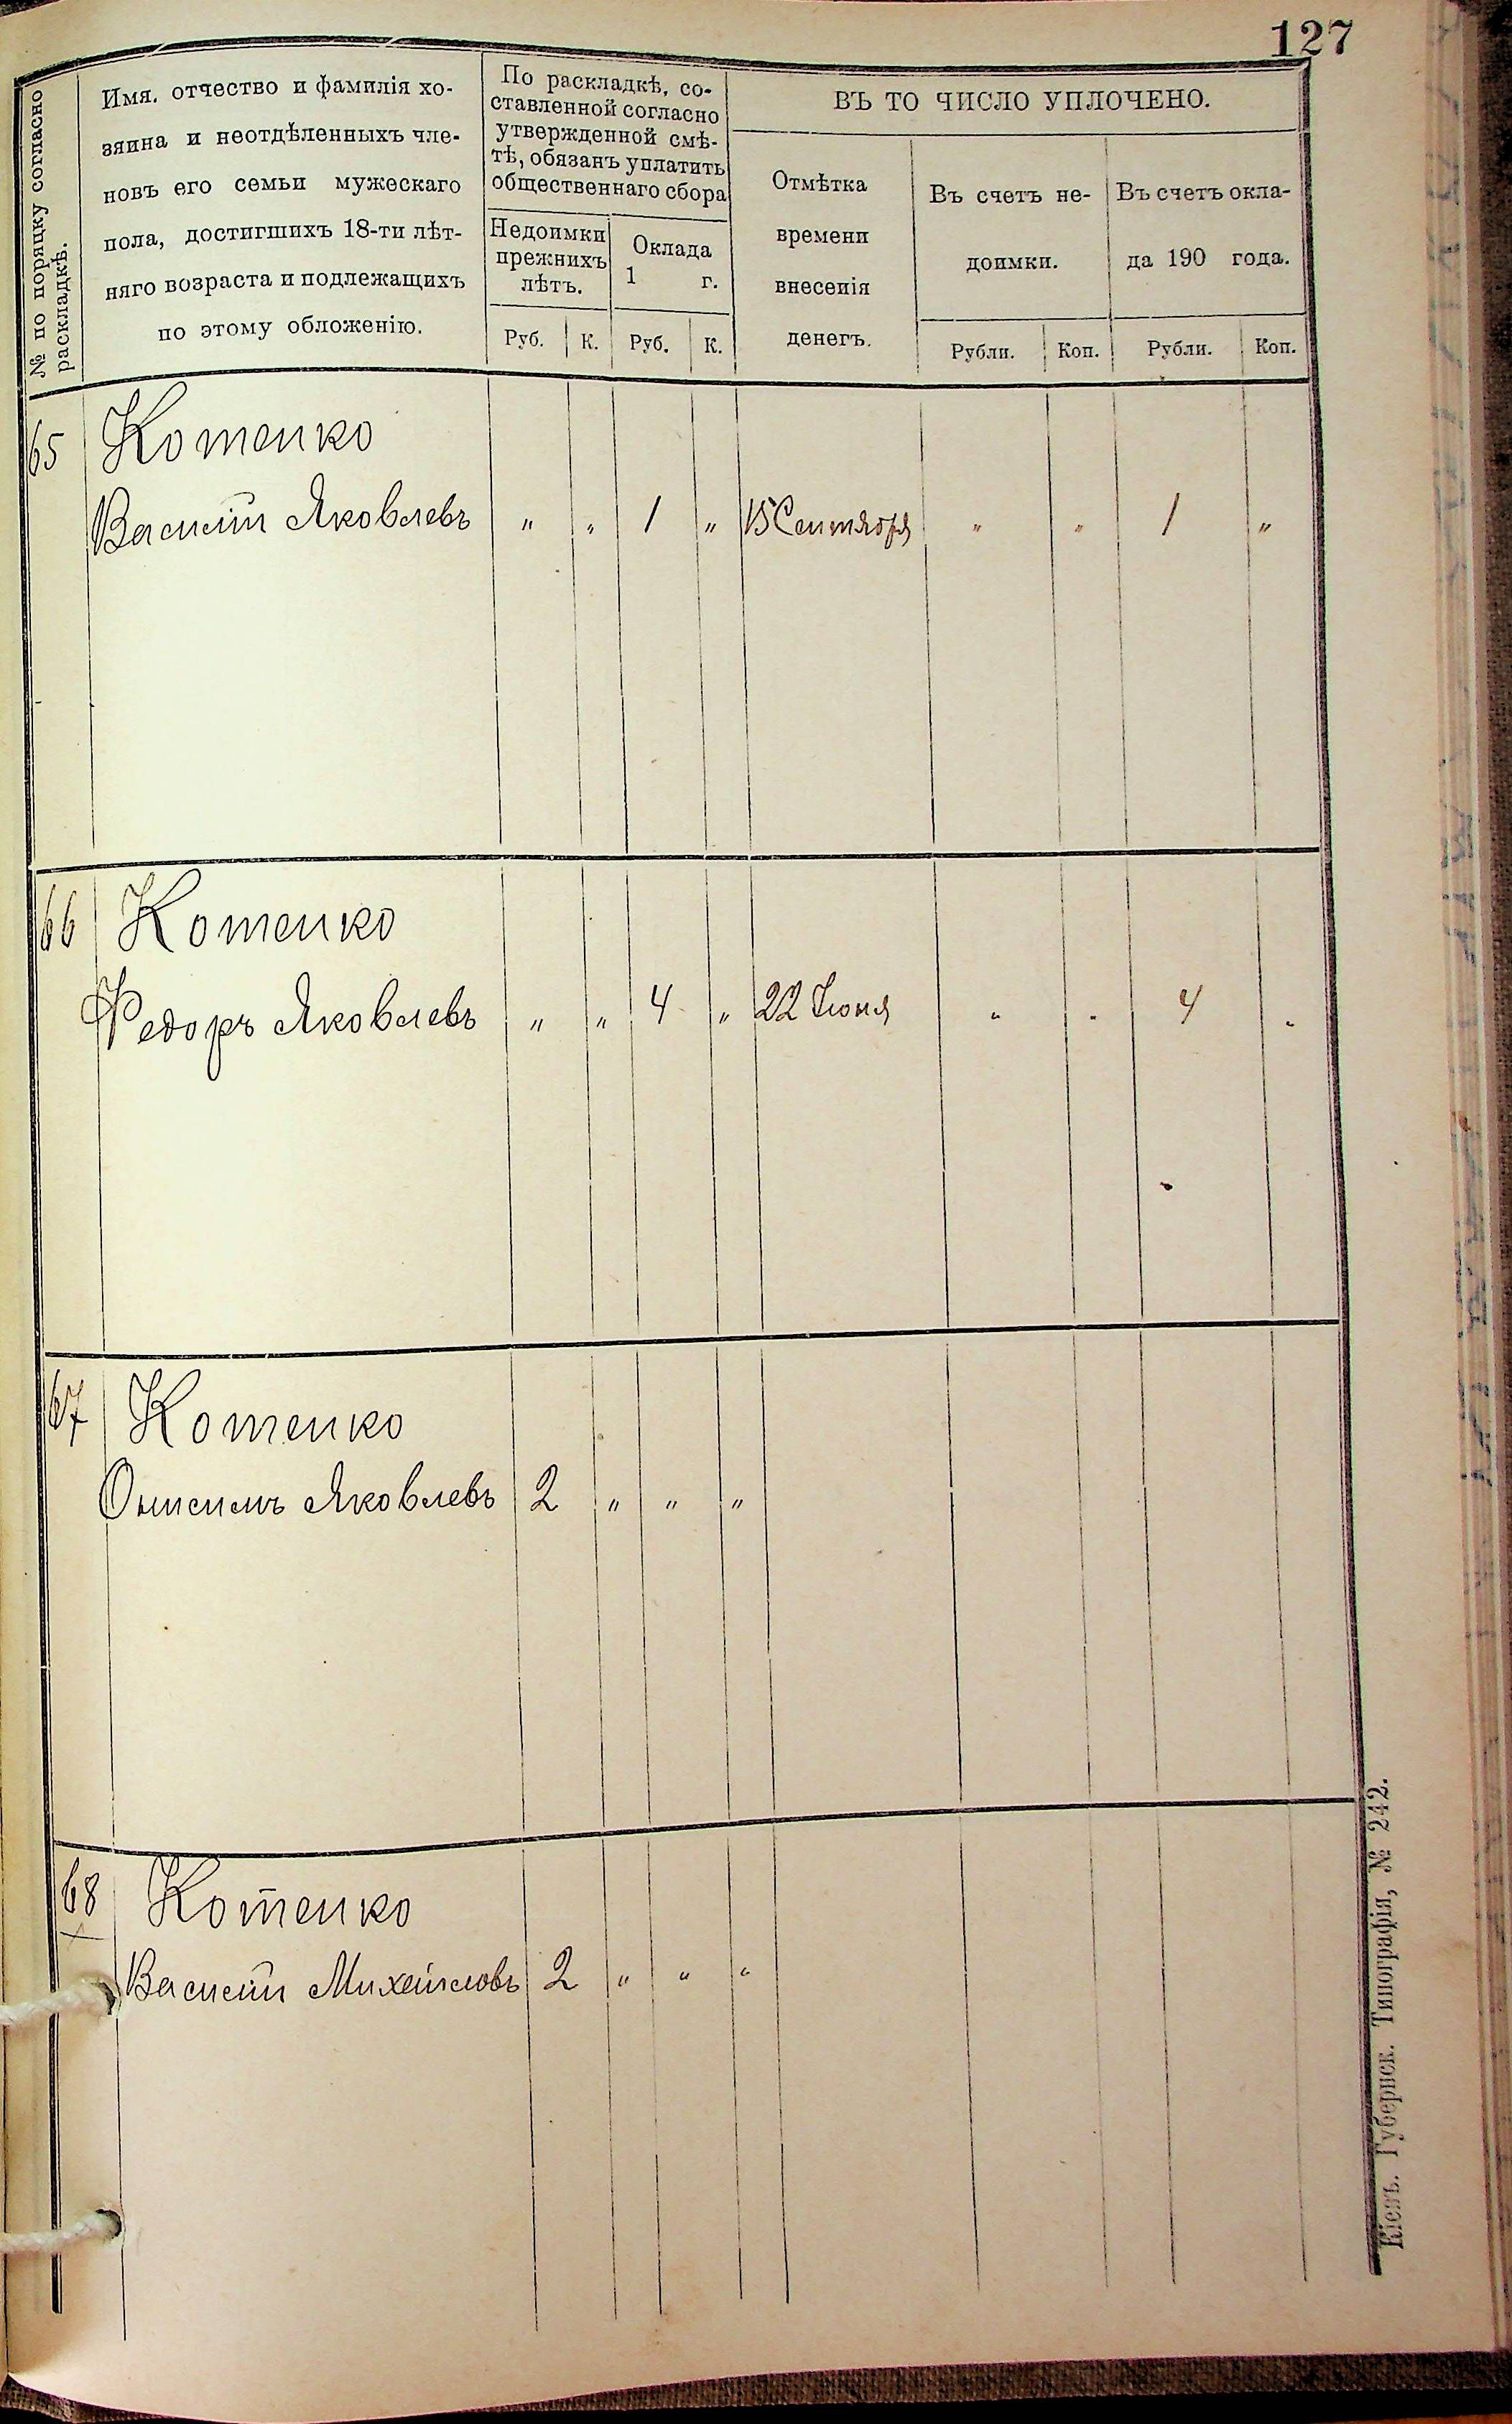 127
№ по порядку согласно
раскладкѣ.
Имя, отчество и фамилія хо-
зяина и неотдѣленныхъ чле-
новъ его семьи мужескаго
пола, достигшихъ 18-ти лѣт-
няго возраста и подлежащихъ
по этому обложенію.
По раскладкѣ, со-
ставленной согласно
утвержденной смѣ-
тѣ, обязанъ уплатить
общественнаго сбора
Недоимки
прежнихъ
лѣтъ.
Оклада
1 г.
Руб. К. Руб. К.
ВЪ ТО ЧИСЛО УПЛОЧЕНО.
Отмѣтка
времени
внесенія
денегъ.
Въ счетъ не-
доимки.
Въ счетъ окла-
да 190 года.
Рубли. Коп. Рубли. Коп.
65 Котенко
Василій Яковлевъ " " 1 " 15 Сентября " " 1 "
66 Котенко
Федоръ Яковлевъ " " 4 " 22 Іюня " " 4 "
67 Котенко
Онисимъ Яковлевъ 2 " " "
68 Котенко
Василій Михайловъ 2 " " "
Кіевъ. Губернск. Типографія, № 242.